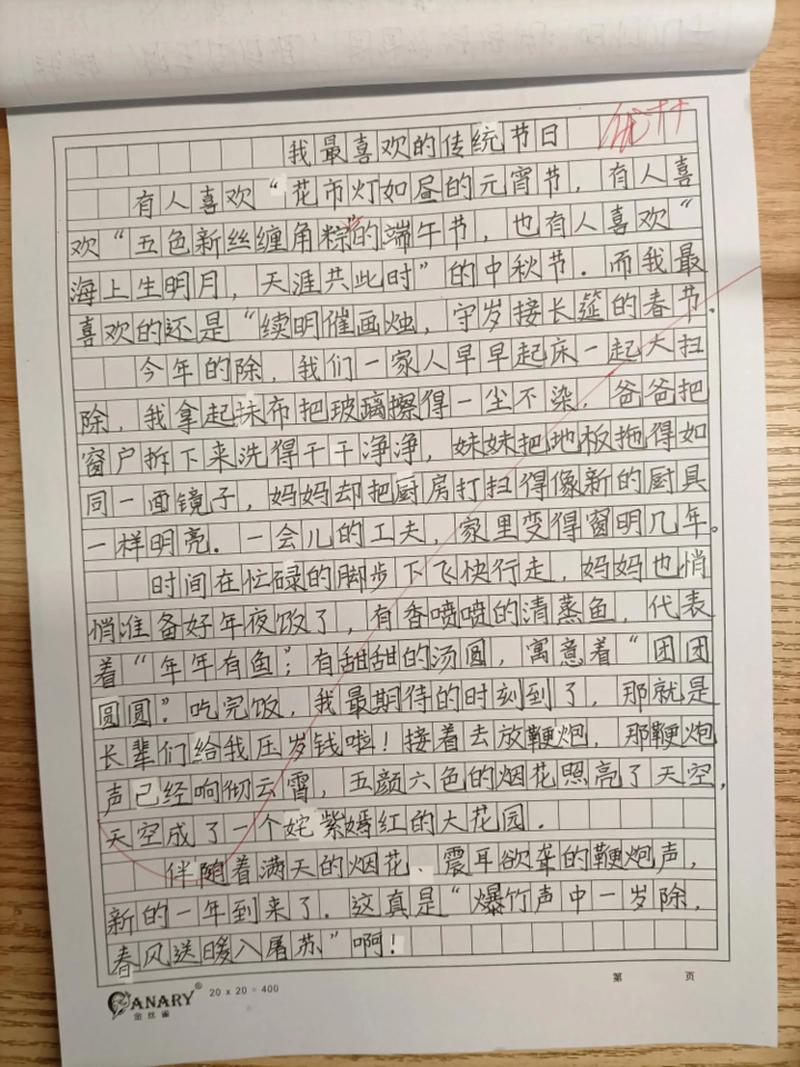 我最喜欢的传统节日
优++
有人喜欢“花市灯如昼的元宵节，有人喜
欢“五色新丝缠角粽”的端午节，也有人喜欢“
海上生明月，天涯共此时”的中秋节．而我最
喜欢的还是“续明催画烛，守岁接长筵的春节．
今年的除，我们一家人早早起床一起大扫
除，我拿起抹布把玻璃擦得一尘不染，爸爸把
窗户拆下来洗得干干净净，妹妹把地板拖得如
同一面镜子，妈妈却把厨房打扫得像新的厨具
一样明亮．一会儿的工夫，家里变得窗明几年。
时间在忙碌的脚步下飞快行走，妈妈也悄
悄准备好年夜饭了，有香喷喷的清蒸鱼，代表
着“年年有鱼”；有甜甜的汤圆，寓意着“团团
圆圆”．吃完饭，我最期待的时刻到了，那就是
长辈们给我压岁钱啦！接着去放鞭炮，那鞭炮
声已经响彻云霄，五颜六色的烟花照亮了天空，
天空成了一个姹紫嫣红的大花园．
伴随着满天的烟花、震耳欲聋的鞭炮声，
新的一年到来了．这真是“爆竹声中一岁除，
春风送暖入屠苏”啊！
CANARY®
金丝雀
20 x 20 = 400
第 页